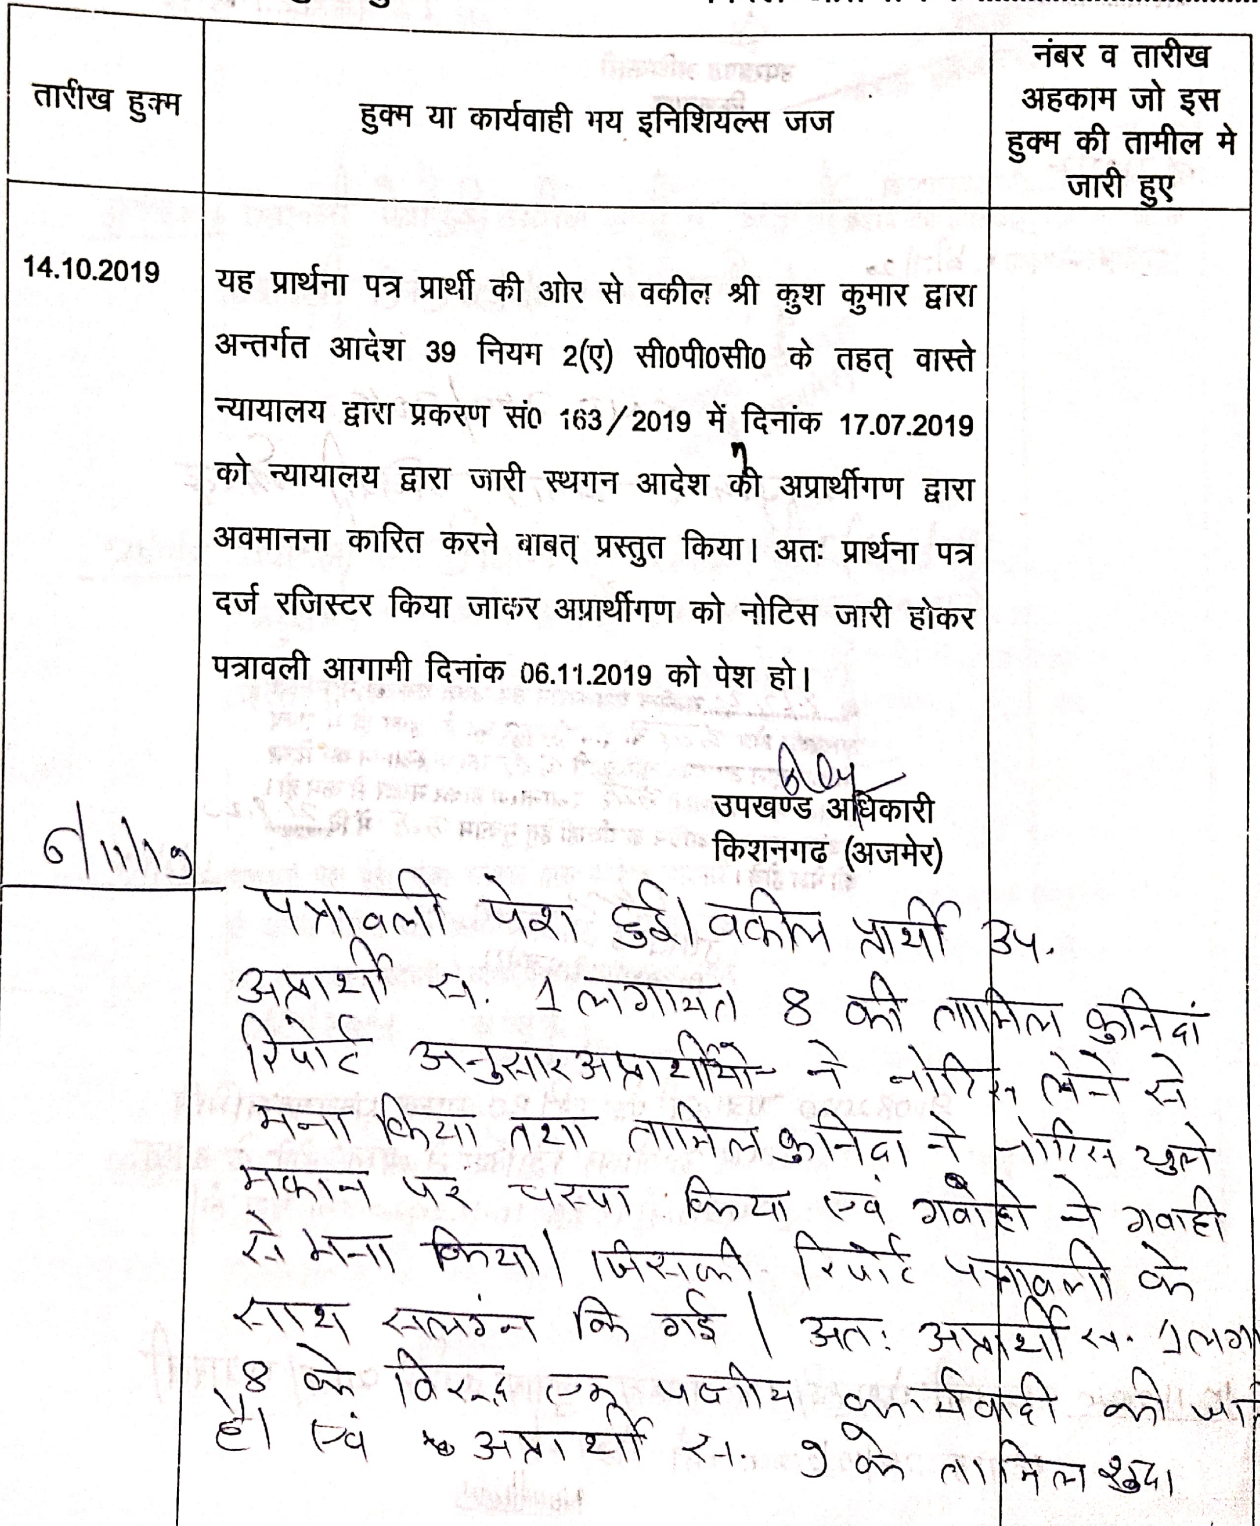 तारीख हुक्म
हुक्म या कार्यवाही मय इनिशियल्स जज
नंबर व तारीख
अहकाम जो इस
हुक्म की तामील मे
जारी हुए
14.10.2019
यह प्रार्थना पत्र प्रार्थी की ओर से वकील श्री कुश कुमार द्वारा
अन्तर्गत आदेश 39 नियम 2(ए) सी0पी0सी0 के तहत् वास्ते
न्यायालय द्वारा प्रकरण सं0 163/2019 में दिनांक 17.07.2019
को न्यायालय द्वारा जारी स्थगन आदेश की अप्रार्थीगण द्वारा
अवमानना कारित करने बाबत् प्रस्तुत किया। अतः प्रार्थना पत्र
दर्ज रजिस्टर किया जाकर अप्रार्थीगण को नोटिस जारी होकर
पत्रावली आगामी दिनांक 06.11.2019 को पेश हो।
उपखण्ड अधिकारी
किशनगढ (अजमेर)
6/11/19
पत्रावली पेश हुई। वकील प्रार्थी उप.
अप्रार्थी स. 1 लगायत 8 की तामिल कुनिदां
रिपोर्ट अनुसार अप्रार्थीयो ने नोटिस लेने से
मना किया तथा तामिल कुनिदा ने नोटिस खुले
मकान पर चस्पा किया एवं गवाहो ने गवाही
से मना किया। जिसकी रिपोर्ट पत्रावली के
साथ सलग्न कि गई। अतः अप्रार्थी स. 1 लगा
8 के विरुद्ध एक पक्षीय कार्यवाही की जाती
है। एवं अप्रार्थी स. 9 के तामिल शुदा